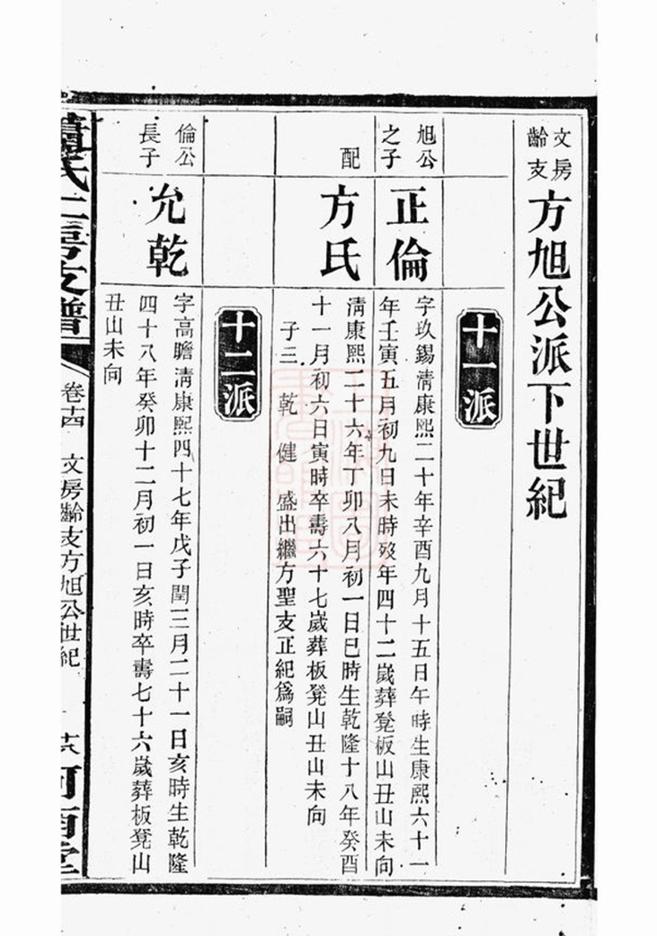 文房
齡支
方旭公派下世紀
十一派
旭公
之子
正倫
字玖錫淸康熙二十年辛酉九月十五日午時生康熙六十一
年壬寅五月初九日未時歿年四十二歲葬凳板山丑山未向
配
方氏
淸康熙二十六年丁卯八月初一日巳時生乾隆十八年癸酉
十一月初六日寅時卒壽六十七歲葬板凳山丑山未向
子三 乾 健 盛出繼方聖支正紀爲嗣
十二派
倫公
長子
允乾
字高瞻淸康熙四十七年戊子閏三月二十一日亥時生乾隆
四十八年癸卯十二月初一日亥時卒壽七十六歲葬板凳山
丑山未向
氏二房支譜
卷十四 文房齡支方旭公世紀